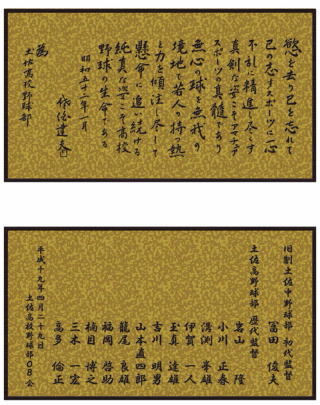 慾を去り己を忘れて
己の志すスポーツに一心
不乱に精進し尽くす
真剣な姿こそアマチュア
スポーツの真髄であり
無心の球を無我の
境地で若人の持つ熱
と力を傾注し尽して
懸命に追い続ける
純真な姿こそ高校
野球の生命である
昭和五十二年一月
達夫
為
土佐高校野球部
旧制土佐中野球部 初代監督
冨田 俊夫
土佐高野球部 歴代監督
嵩山 隆
小川 正春
溝渕 峯雄
伊賀 一人
玉真 達雄
吉川 明男
山本直四郎
籠尾 良雄
福岡 啓助
楠目 博之
三木 一宏
高多 倫正
平成十九年四月二十九日
土佐高校野球部OB会